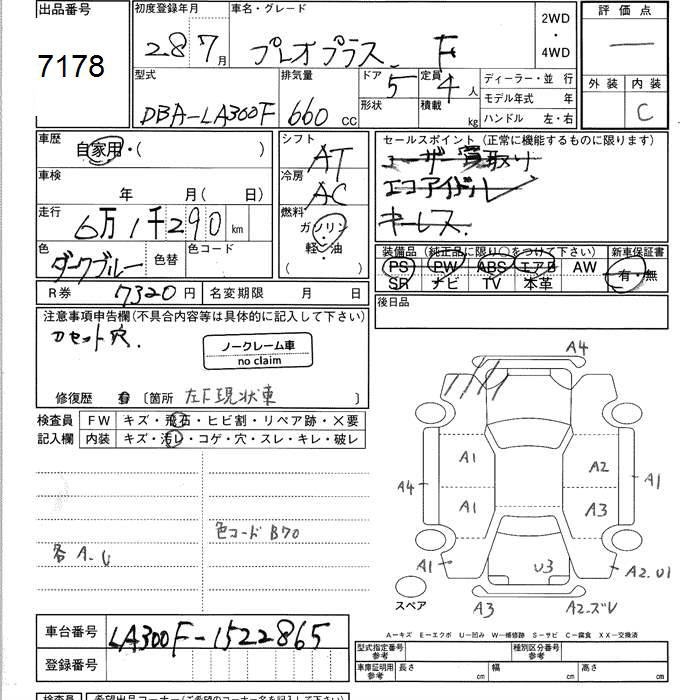 出品番号
7178
初度登録年月
28 7月
車名・グレード
プレオプラス F
2WD
・
4WD
評価点
外装 内装
C
型式
DBA-LA300F
排気量
660 cc
ドア 5
形状
定員 4 人
積載 kg
ディーラー・並 行
モデル年式 年
ハンドル 左・右
車歴
自家用・( )
車検
年 月( 日)
走行
6万1千290 km
色
ダークブルー
色替
色コード
R券 7320円
名変期限 月 日
シフト
AT
冷房
AC
燃料
ガソリン
軽・油
( )
セールスポイント (正常に機能するものに限ります)
ユーザー買取り
エコアイドル
キーレス.
装備品 (純正品に限り○をつけて下さい)
PS PW ABS エアB AW
SR ナビ TV 本革
新車保証書
有・無
後日品
注意事項申告欄(不具合内容等は具体的に記入して下さい)
カセット穴.
ノークレーム車
no claim
修復歴 〔箇所 左下現状車 〕
検査員
記入欄
FW キズ・飛石・ヒビ割・リペア跡・×要
内装 キズ・汚レ・コゲ・穴・スレ・キレ・破レ
色コード B70
各A.U
A4
A1
A2
A4
A1
A1
A3
A1
U3
A2.U1
スペア
A3
A2-ズレ
A−キズ E−エクボ U−凹み W−補修跡 S−サビ C−腐食 XX−交換済
車台番号
LA300F-1522865
登録番号
型式指定番号
参考
種別区分番号
参考
車庫証明用
参考
長さ cm
幅 cm
高さ cm
検査員
希望出品コーナー(ご希望のコーナー名を記入下さい)